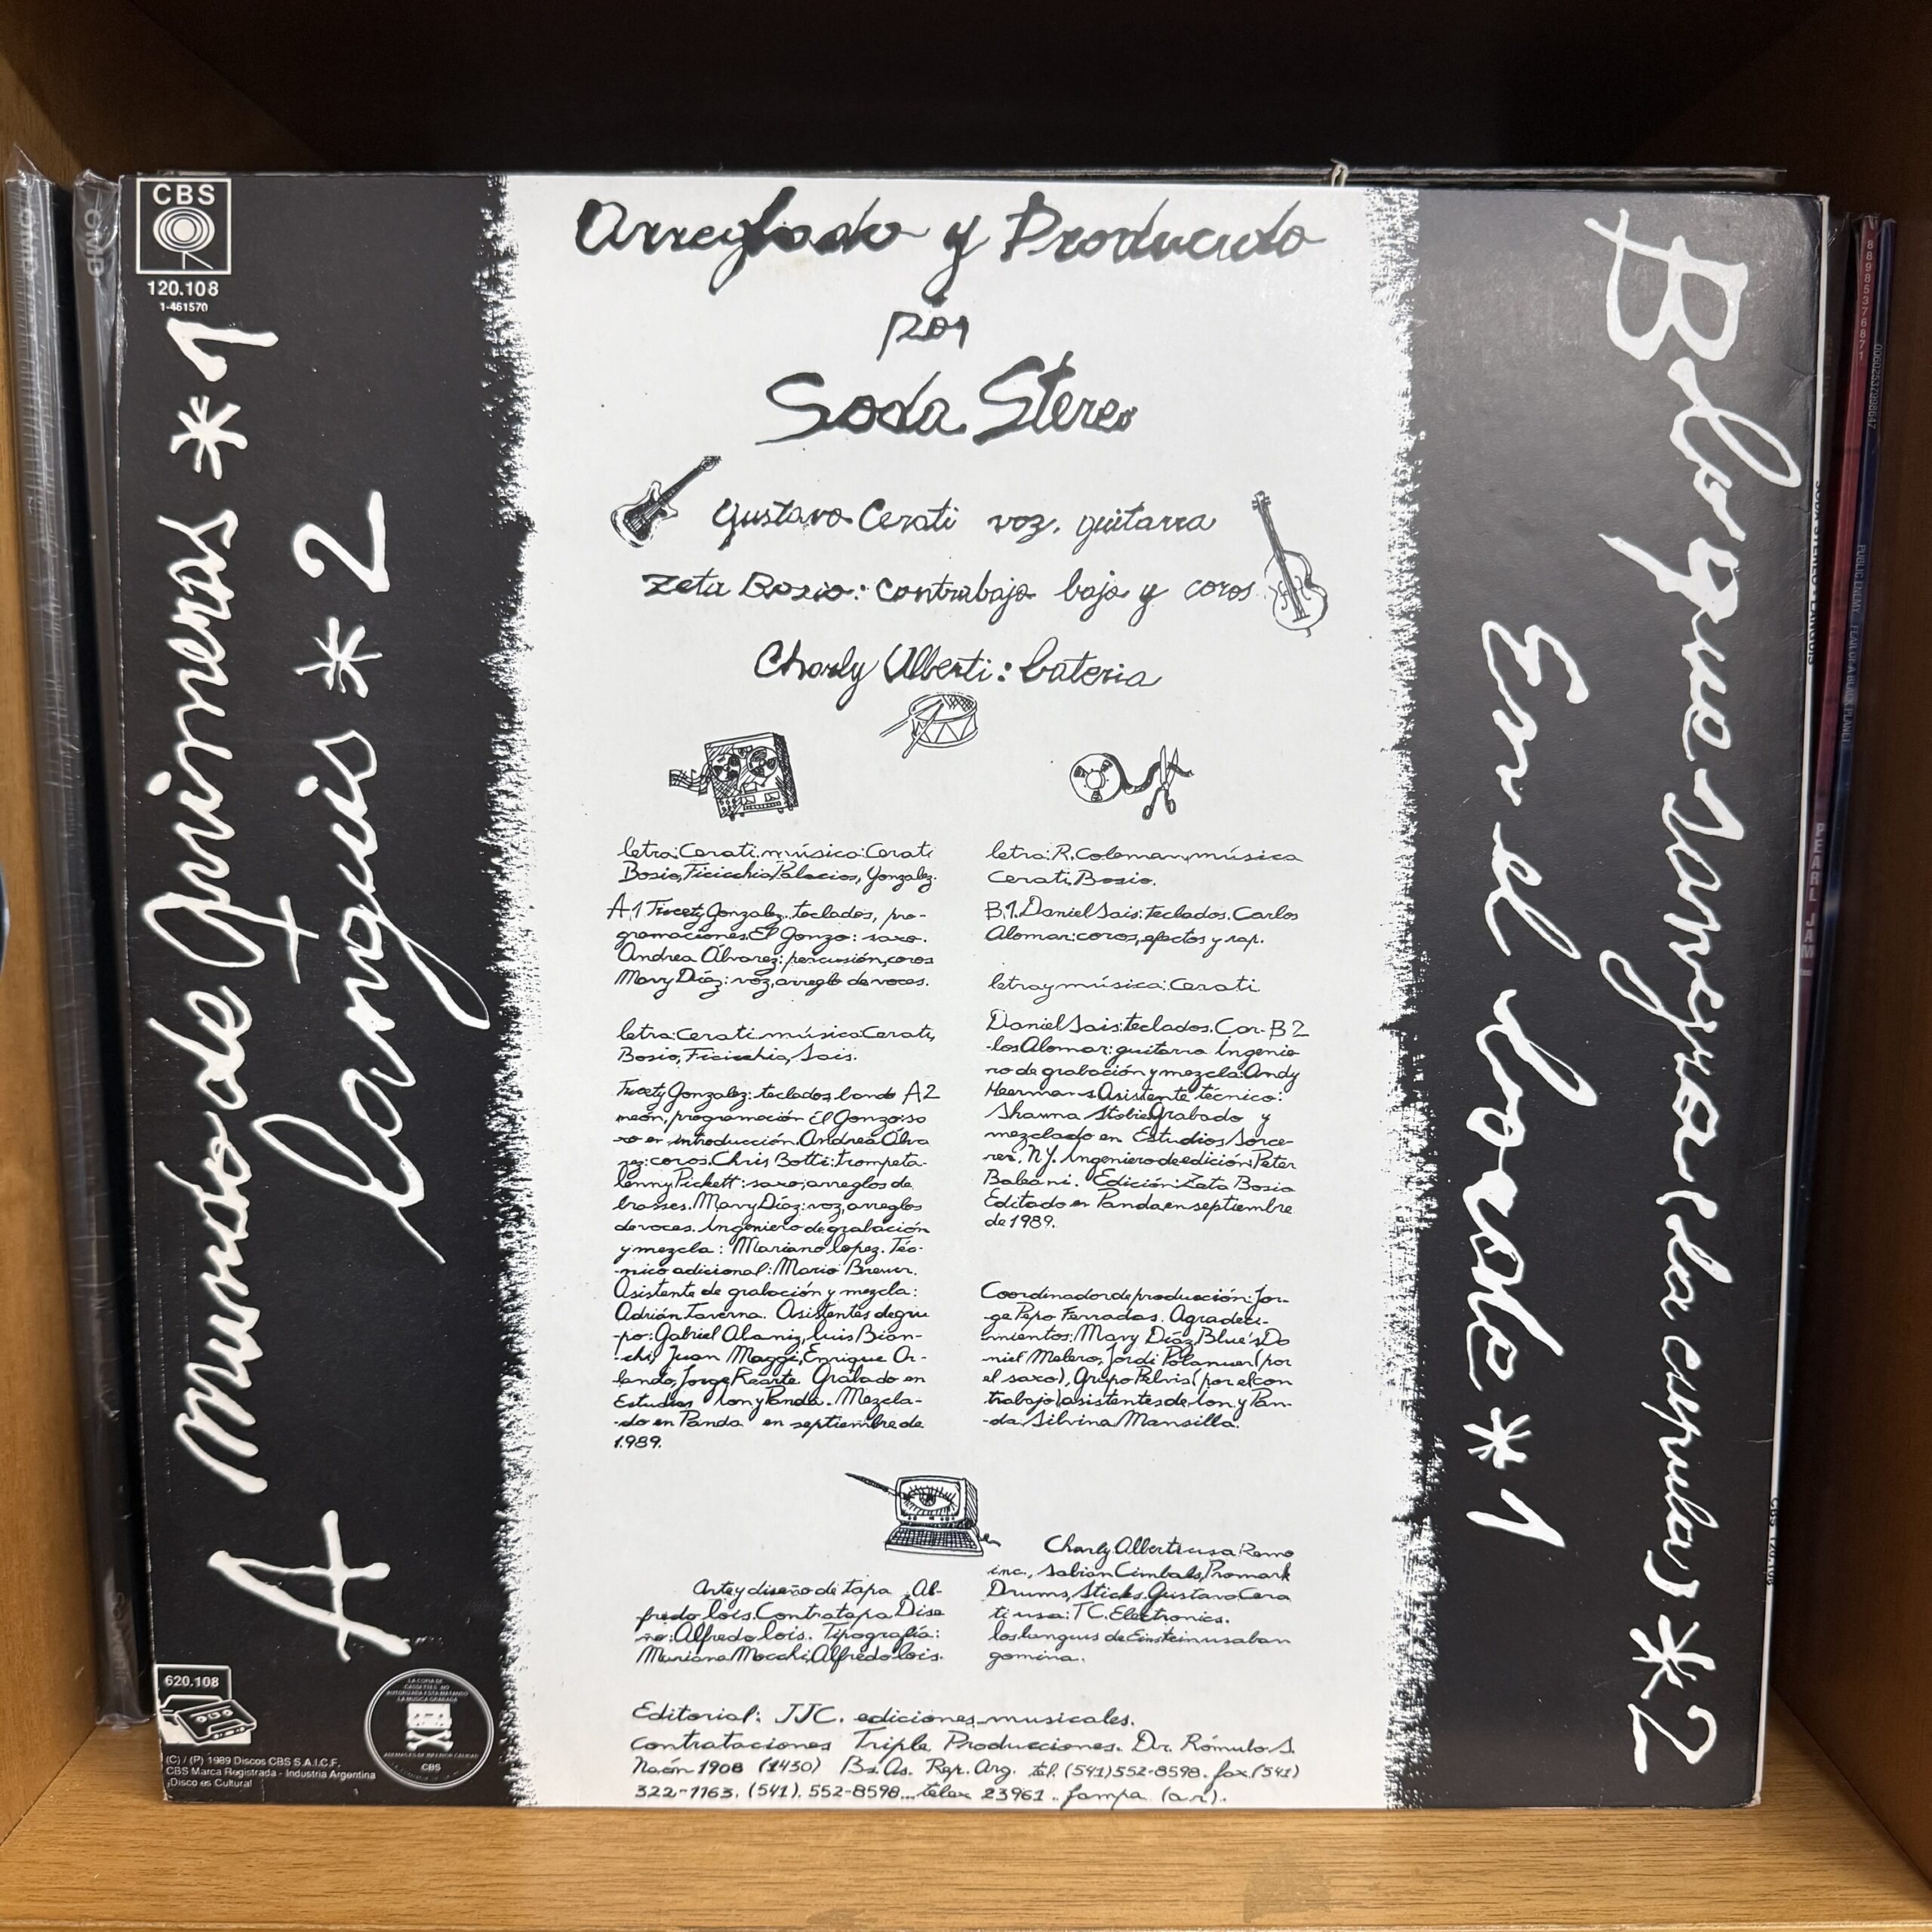 CBS
120.108
1-461570
A Mundo de Quimeras * 1
Languis * 2
620.108
LA COPIA DE
CASSETTES NO
AUTORIZADA ESTA MATANDO
LA MUSICA GRABADA
ADEMAS ES DE INFERIOR CALIDAD
CBS
(C) / (P) 1989 Discos CBS S.A.I.C.F.
CBS Marca Registrada - Industria Argentina
Disco es Cultural
Arreglado y Producido
por
Soda Stereo
Gustavo Cerati voz, guitarra
Zeta Bosio: contrabajo bajo y coros
Charly Alberti: bateria
letra: Cerati. música: Cerati
Bosio, Ficicchia, Palacios, Gonzalez.
A.1 Tweety Gonzalez. teclados, pro-
gramaciones. El Gonzo: saxo.
Andrea Álvarez: percusión, coros
Mavy Díaz: voz, arreglo de voces.
letra: Cerati. música: Cerati,
Bosio, Ficicchia, Sais.
Tweety Gonzalez: teclados, bando A2
neón, programación El Gonzo: sa
xo en introducción. Andrea Álva
rez: coros. Chris Botti: trompeta.
Lenny Pickett: saxo, arreglos de
brasses. Mavy Díaz: voz, arreglos
de voces. Ingeniero de grabación
y mezcla: Mariano Lopez. Téc-
-nico adicional: Mario Breuer.
Asistente de grabación y mezcla:
Adrián Taverna. Asistentes de gru
-po: Gabriel Alaniz, Luis Bian-
-chi, Juan Maggi, Enrique Or-
lando, Jorge Rearte. Grabado en
Estudios Ion y Panda. Mezcla-
-do en Panda en septiembre de
1.989.
letra: R. Coleman, música
Cerati, Bosio.
B.1. Daniel Sais: teclados. Carlos
Alomar: coros, efectos y rap.
letra y música: Cerati
Daniel Sais: teclados. Car- B2
-los Alomar: guitarra Ingenie
ro de grabación y mezcla: Andy
Heermans Asistente técnico:
Shawna Stobie Grabado y
mezclado en Estudios Sorce-
rer. N.Y. Ingeniero de edición: Peter
Baleani. Edición: Zeta Bosio
Editado en Panda, en septiembre
de 1989.
Coordinador de producción: Jor-
-ge Pepo Ferradas. Agradeci-
-mientos: Mavy Díaz, Blue's Da
niel Melero, Jordi Polanuer (por
el saxo), Grupo Pelvis (por el con
trabajo) asistentes de Ion y Pan-
-da. Silvina Mansilla.
Arte y diseño de tapa Al-
fredo Lois. Contratapa Dise
ño: Alfredo Lois. Tipografía:
Mariana Mocchi, Alfredo Lois.
Charly Alberti usa: Remo
inc., Sabian Cimbals, Promark
Drums, Sticks. Gustavo Cera
ti usa: T.C. Electronics.
los languis de Einstein usaban
gomina.
Editorial: JJC. ediciones musicales.
Contrataciones Triple Producciones. Dr. Rómulo S.
Naón 1908 (1430) Bs. As. Rep. Arg. tel. (541)552-8598. fax. (541)
322-1163. (541). 552-8598... telex 23961.. fampa (ar).
Bloques
En el borde * 1
Sangrías (las cupulas) * 2
88985376871
00602537998647
PUBLIC ENEMY - FEAR OF A BLACK PLANET
PEARL JAM